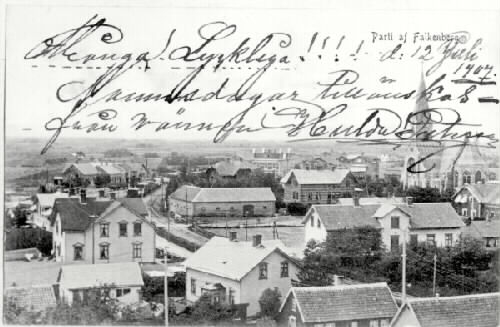 Parti af Falkenberg
Många! Lyckliga!!!! d: 12 Juli
1907
Namnsdagar tillönskas
från vännen Hulda